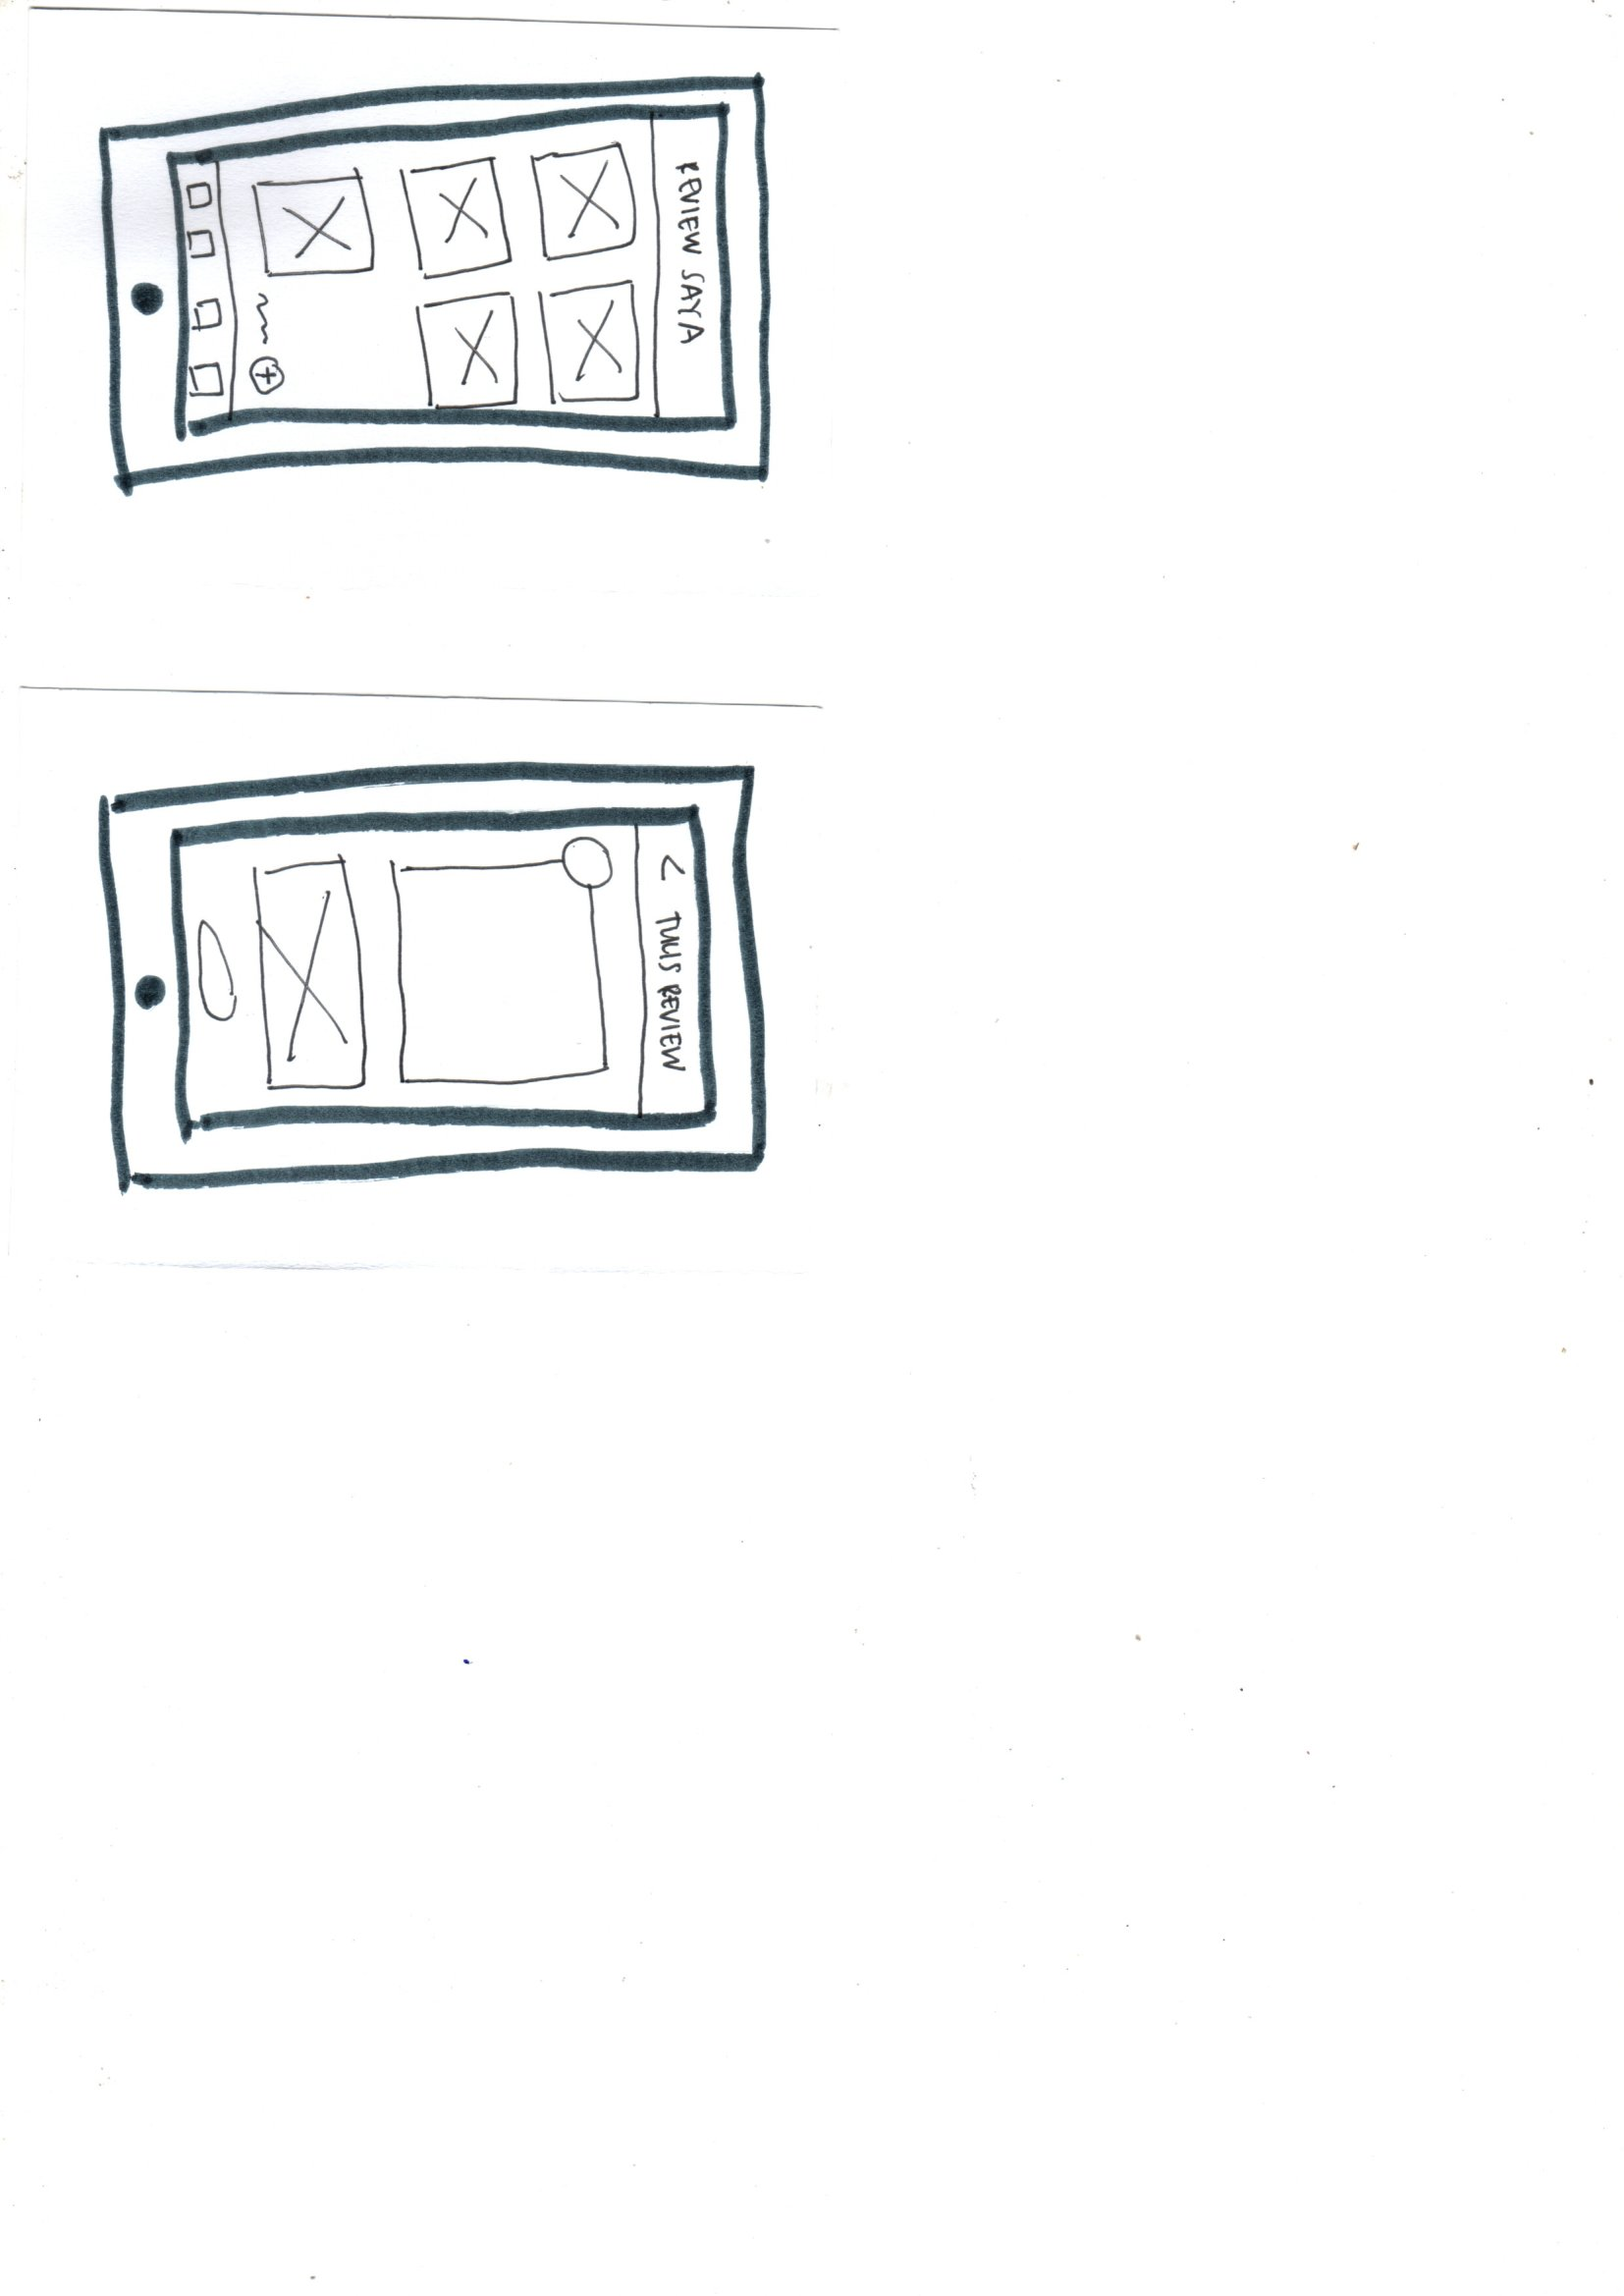 REVIEW SAYA
< TULIS REVIEW